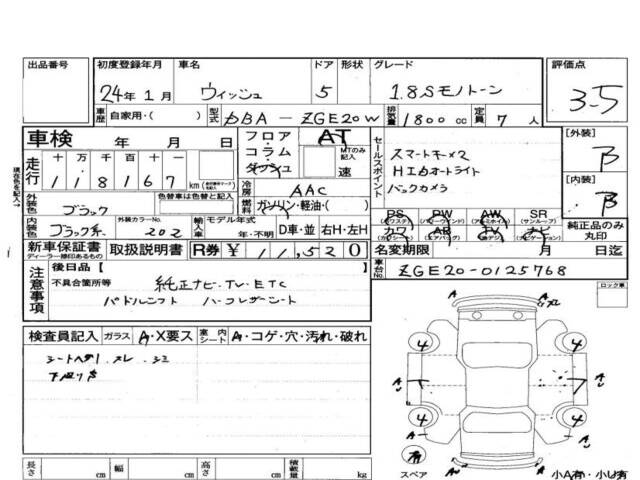 出品番号 初度登録年月 車名 ドア 形状 グレード 評価点
24年1月 ウィッシュ 5 1.8Sモノトーン 3.5
車歴 自家用・( ) 型式 DBA-ZGE20W 排気量 1800cc 定員 7人
車検 年 月 日 フロア・コラム・ダッシュ AT MTのみ記入 速 セールスポイント スマートキー×2 [外装] B
走行 十万千百十 118167km HIDオートライト
現在色を記入→ 冷房 AAC バックカメラ [内装] B
外装色 ブラック 色替車は色替と記入 燃料 ガソリン・軽油・( )
PS PW AW SR
内装色 ブラック系 外装カラーNo. 202 輸入車 モデル年式 年・不明 D車・並 右H・左H カワ AB TV ナビ 純正品のみ丸印
新車保証書 ディーラー捺印あるもの 取扱説明書 R券 ¥11,520 名変期限 月 日迄
注意事項 後日品[ ] 車台No. ZGE20-0125768
不具合箇所等 純正ナビ・TV・ETC ロック車
パドルシフト ハーフレザーシート
検査員記入 ガラス A・X要ス 室内シート A・コゲ・穴・汚れ・破れ
下廻り
4 4
4 4
長さ cm 幅 cm 高さ cm 積載量 kg スペア 小A有・小U有